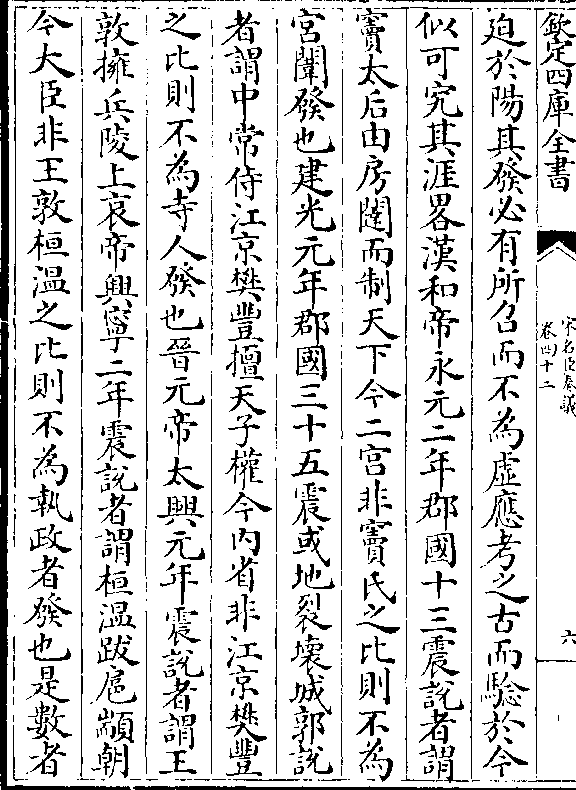 欽定四庫全書
宋名臣奏議
卷四十二
六
迫於陽其發必有所召而不為虛應考之古而驗於今
似可究其涯畧漢和帝永元二年郡國十三震說者謂
竇太后由房闥而制天下今二宮非竇氏之比則不為
宮闈發也建光元年郡國三十五震或地裂壞城郭說
者謂中常侍江京樊豐擅天子權今内省非江京樊豐
之比則不為寺人發也晉元帝太興元年震說者謂王
敦擁兵陵上哀帝興寧二年震說者謂桓溫跋扈顓朝
今大臣非王敦桓溫之比則不為執政者發也是數者